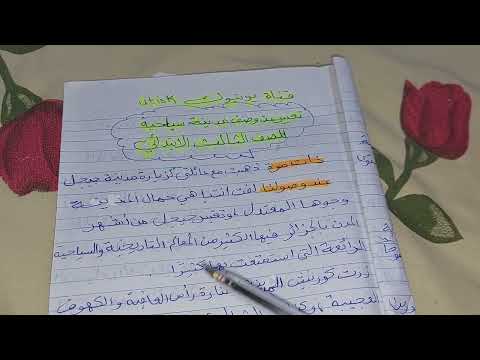 قناة يوتيوب
تعبير وصف مدينة سياحية
للصف الثالث ابتدائي
ذات مرة ذهبت مع عائلتي لزيارة مدينة جيجل
عند وصولنا لفت انتباهي جمال المدينة
وجوها المعتدل جيجل من أشهر
المدن بالجزائر فيها الكثير من المعالم التاريخية والسياحية
الرائعة التي استمتعت بها كثيرا.
زرت كورنيش المدينة منارة رأس العافية و الكهوف
العجيبة